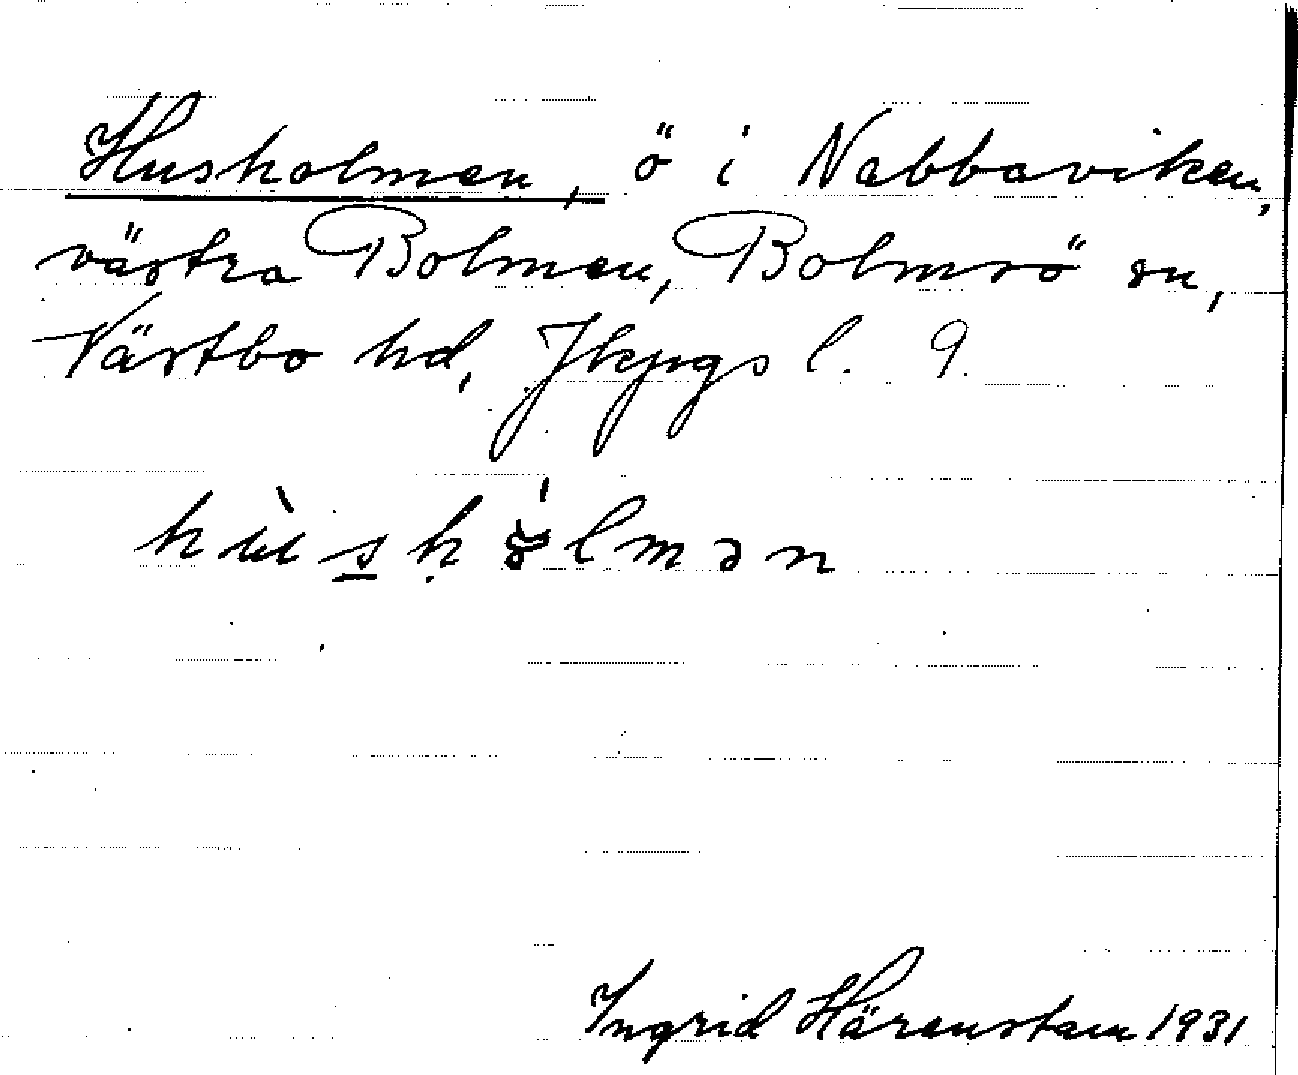 Husholmen, ö i Nabbaviken,
västra Bolmen, Bolmsö sn,
Västbo hd, Jkpgs l. 9.
Ingrid Härenstam 1931